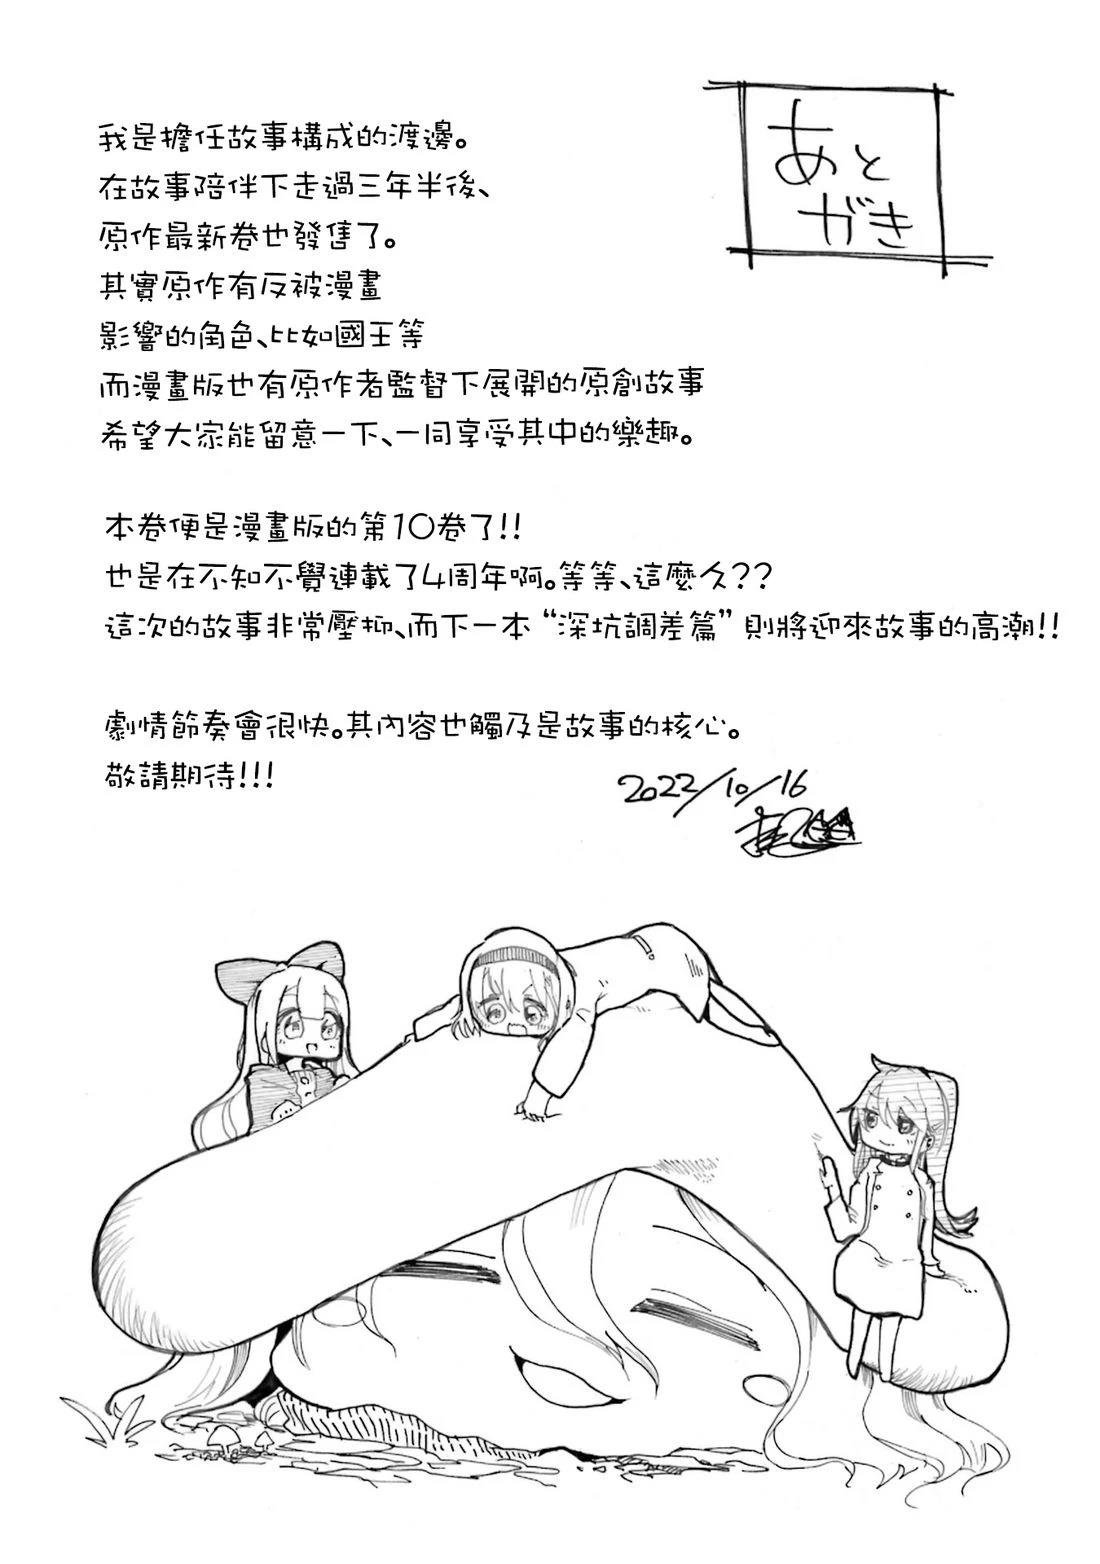 あと
がき
我是擔任故事構成的渡邊。
在故事陪伴下走過三年半後、
原作最新卷也發售了。
其實原作有反被漫畫
影響的角色、比如國王等
而漫畫版也有原作者監督下展開的原創故事
希望大家能留意一下、一同享受其中的樂趣。
本卷便是漫畫版的第10卷了!!
也是在不知不覺連載了4周年啊。等等、這麼久??
這次的故事非常壓抑、而下一本“深坑調差篇”則將迎來故事的高潮!!
劇情節奏會很快。其內容也觸及是故事的核心。
敬請期待!!!
2022/10/16